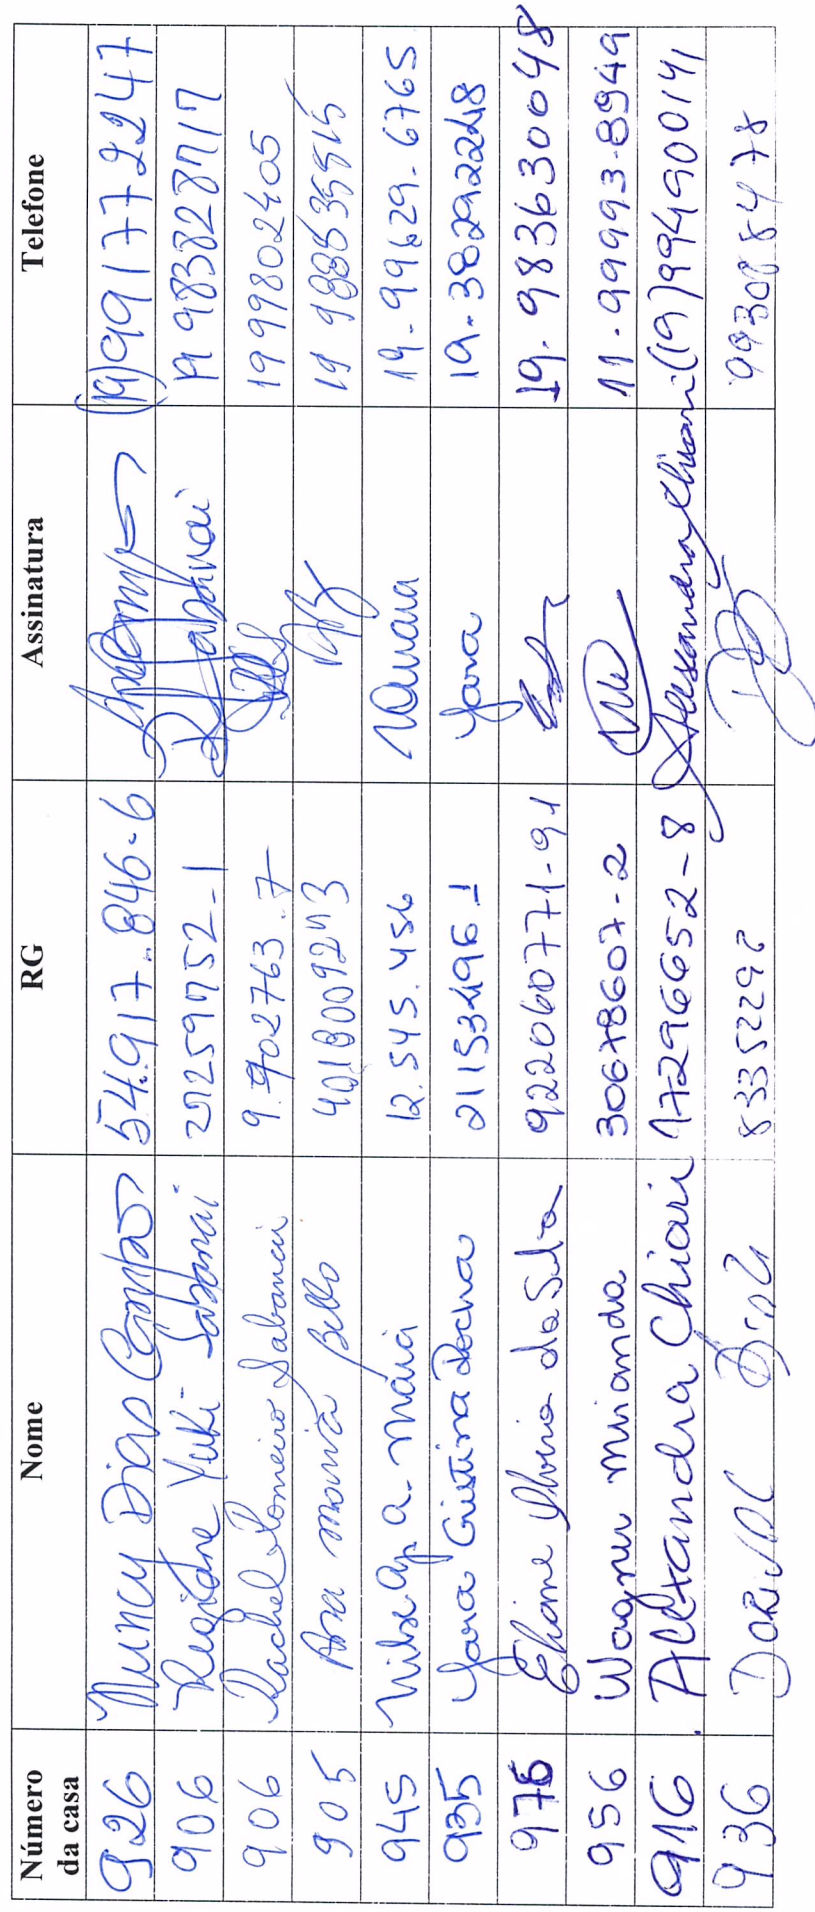 Número da casa Nome RG Assinatura Telefone
926 Nuncy Dias Campos 54.917.846-6 (19) 991772247
906 Regiane Yuki Sabanai 29259752-1 Sabanai 19 983828717
906 Rachel Romeiro Sabanai 9.902763.7 19 99802405
905 Ana Maria Bello 4018009243 19
945 Nilse Ap. A. Maria 12.545.456 19-99629-6765
935 Yara Cristina Rocha 21153496-1 Yara 19-38292248
976 Eliane Silvia da Silva 922060771-91 19-983630048
956 Wagner Miranda 30678607-2 11-99993-8949
916 Alexandra Chiari 17296652-8 Alexandra Chiari (19) 994900141
936 Dorival 83352292 993088478